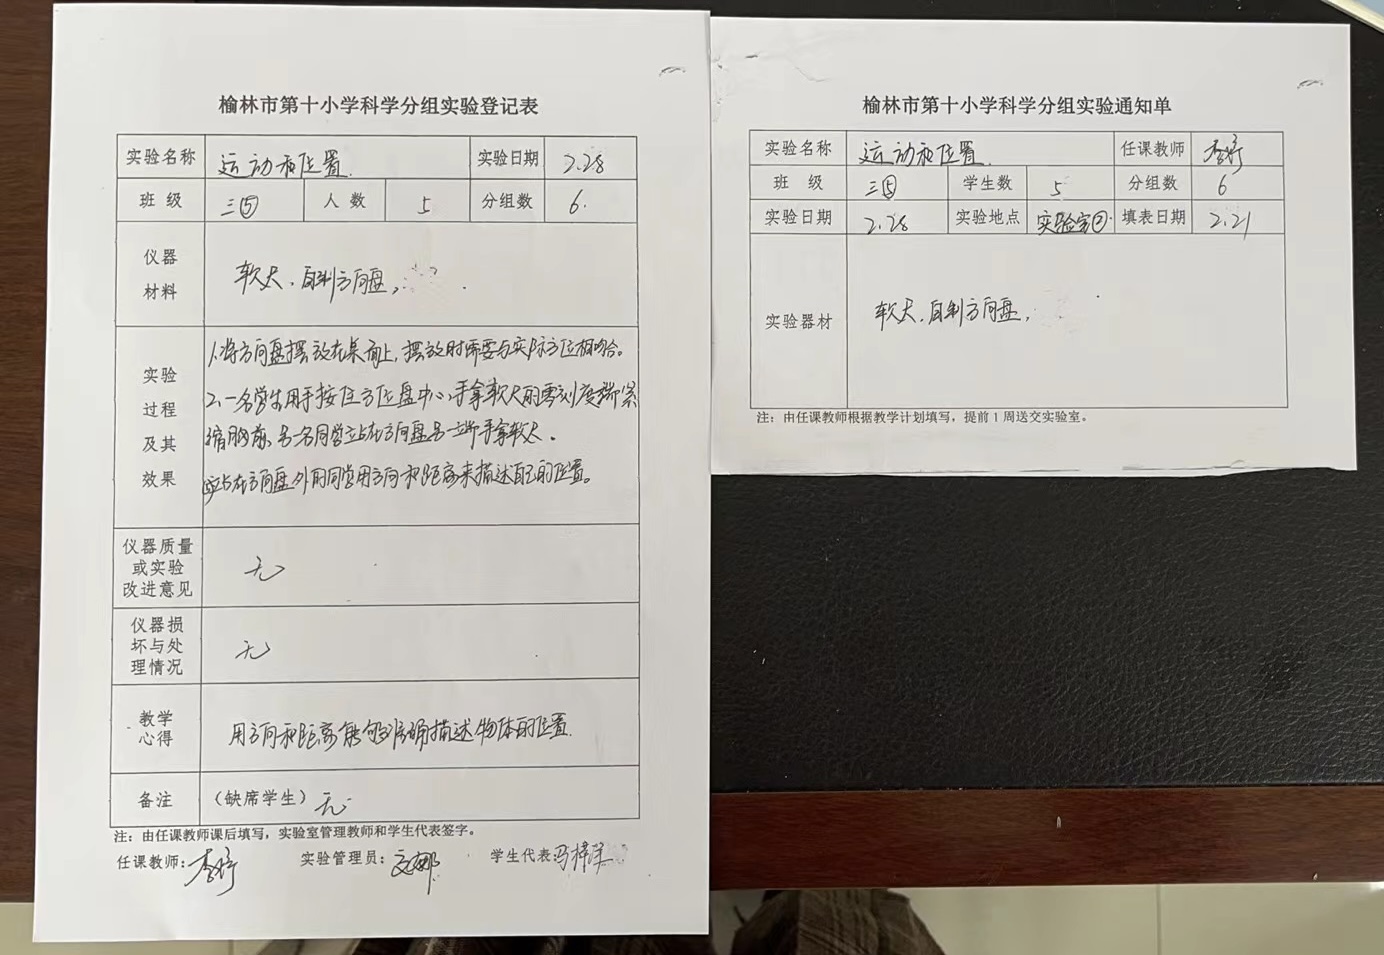 榆林市第十小学科学分组实验登记表
实验名称 运动和位置 实验日期 2.28
班级 三⑤ 人数 5 分组数 6.
仪器材料 软尺、自制方向盘,
实验过程及其效果
1.将方向盘摆放在桌面上,摆放时需要与实际方位相吻合。
2、一名学生用手按住方位盘中心,手拿软尺的零刻度端紧
前、另一名同学站在方向盘另一端手拿软尺。
站在方向盘外的同学用方向和距离来描述自己的位置。
仪器质量或实验改进意见 无
仪器损坏与处理情况 无
教学心得 用方向和距离能够准确描述物体的位置.
备注 (缺席学生) 无.
注:由任课教师课后填写,实验室管理教师和学生代表签字。
任课教师: 李婷 实验管理员: 学生代表:
榆林市第十小学科学分组实验通知单
实验名称 运动和位置. 任课教师 李婷
班级 三⑤ 学生数 5 分组数 6
实验日期 2.28 实验地点 实验室②. 填表日期 2.21
实验器材 软尺、自制方向盘,
注:由任课教师根据教学计划填写,提前1周送交实验室。